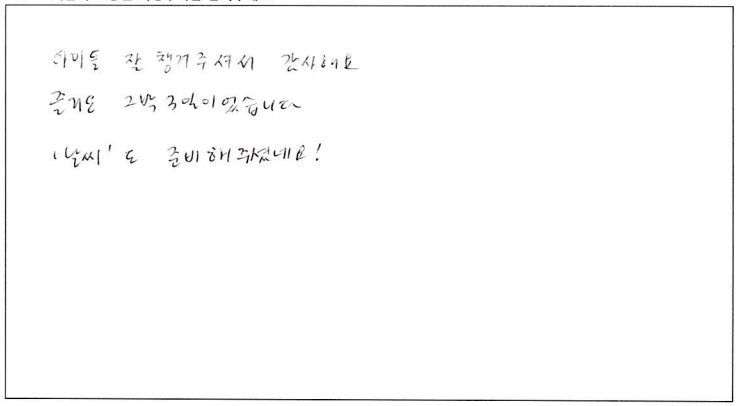 아이들 잘 챙겨주셔서 감사해요
즐거운 2박 3일이었습니다
'날씨'도 준비해주셨네요!